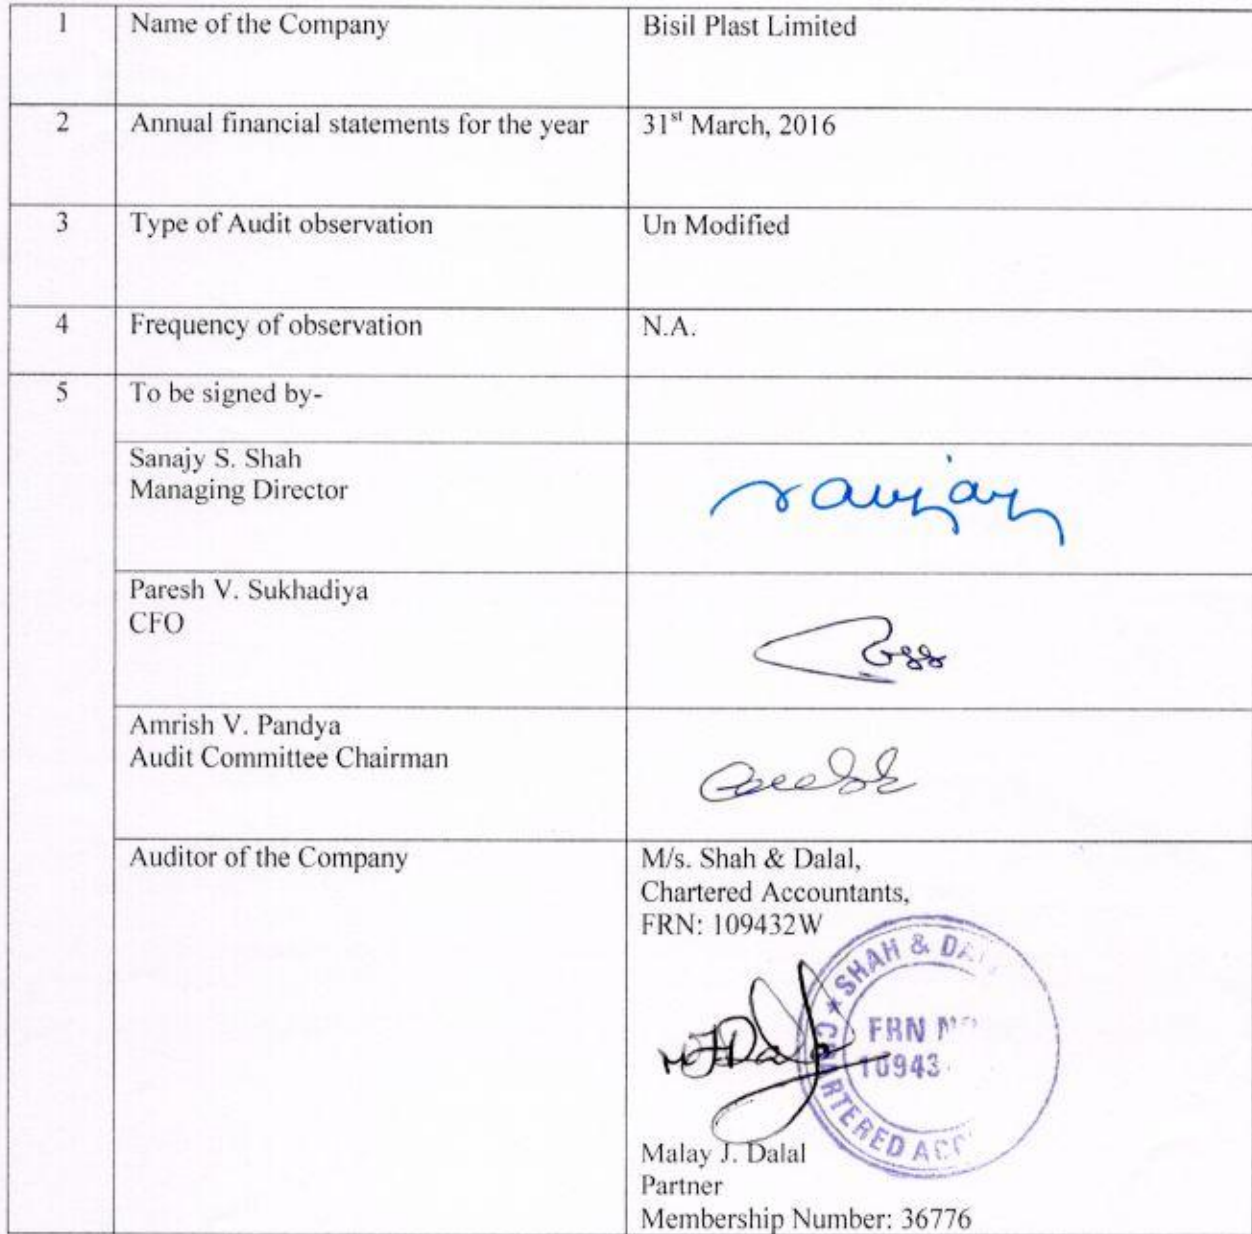 1 Name of the Company Bisil Plast Limited
2 Annual financial statements for the year 31st March, 2016
3 Type of Audit observation Un Modified
4 Frequency of observation N.A.
5 To be signed by-
Sanajy S. Shah
Managing Director
sanjay
Paresh V. Sukhadiya
CFO
Amrish V. Pandya
Audit Committee Chairman
Auditor of the Company
M/s. Shah & Dalal,
Chartered Accountants,
FRN: 109432W
SHAH & DA
FRN NO
10943
CHARTERED ACC
MJDalal
Malay J. Dalal
Partner
Membership Number: 36776